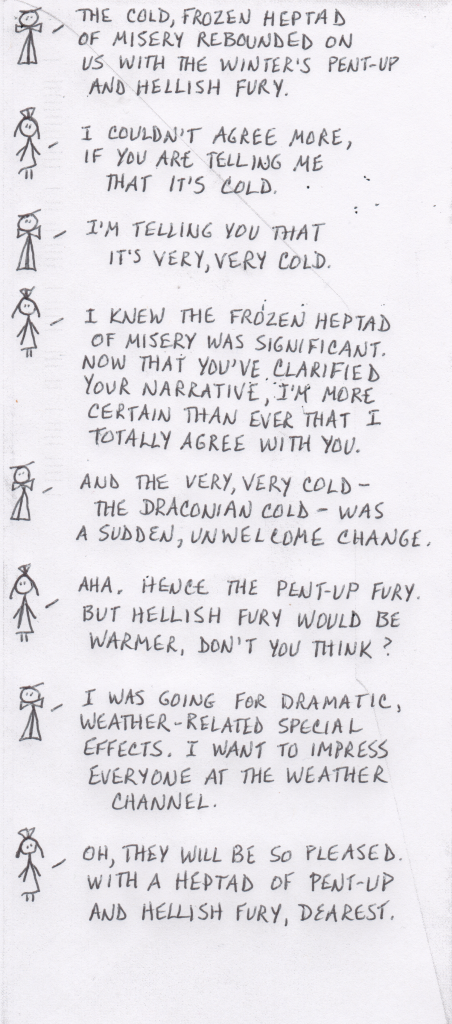 THE COLD, FROZEN HEPTAD
OF MISERY REBOUNDED ON
US WITH THE WINTER'S PENT-UP
AND HELLISH FURY.
I COULDN'T AGREE MORE,
IF YOU ARE TELLING ME
THAT IT'S COLD.
I'M TELLING YOU THAT
IT'S VERY, VERY COLD.
I KNEW THE FROZEN HEPTAD
OF MISERY WAS SIGNIFICANT.
NOW THAT YOU'VE CLARIFIED
YOUR NARRATIVE, I'M MORE
CERTAIN THAN EVER THAT I
TOTALLY AGREE WITH YOU.
AND THE VERY, VERY COLD -
THE DRACONIAN COLD - WAS
A SUDDEN, UNWELCOME CHANGE.
AHA. HENCE THE PENT-UP FURY.
BUT HELLISH FURY WOULD BE
WARMER, DON'T YOU THINK?
I WAS GOING FOR DRAMATIC,
WEATHER-RELATED SPECIAL
EFFECTS. I WANT TO IMPRESS
EVERYONE AT THE WEATHER
CHANNEL.
OH, THEY WILL BE SO PLEASED.
WITH A HEPTAD OF PENT-UP
AND HELLISH FURY, DEAREST.